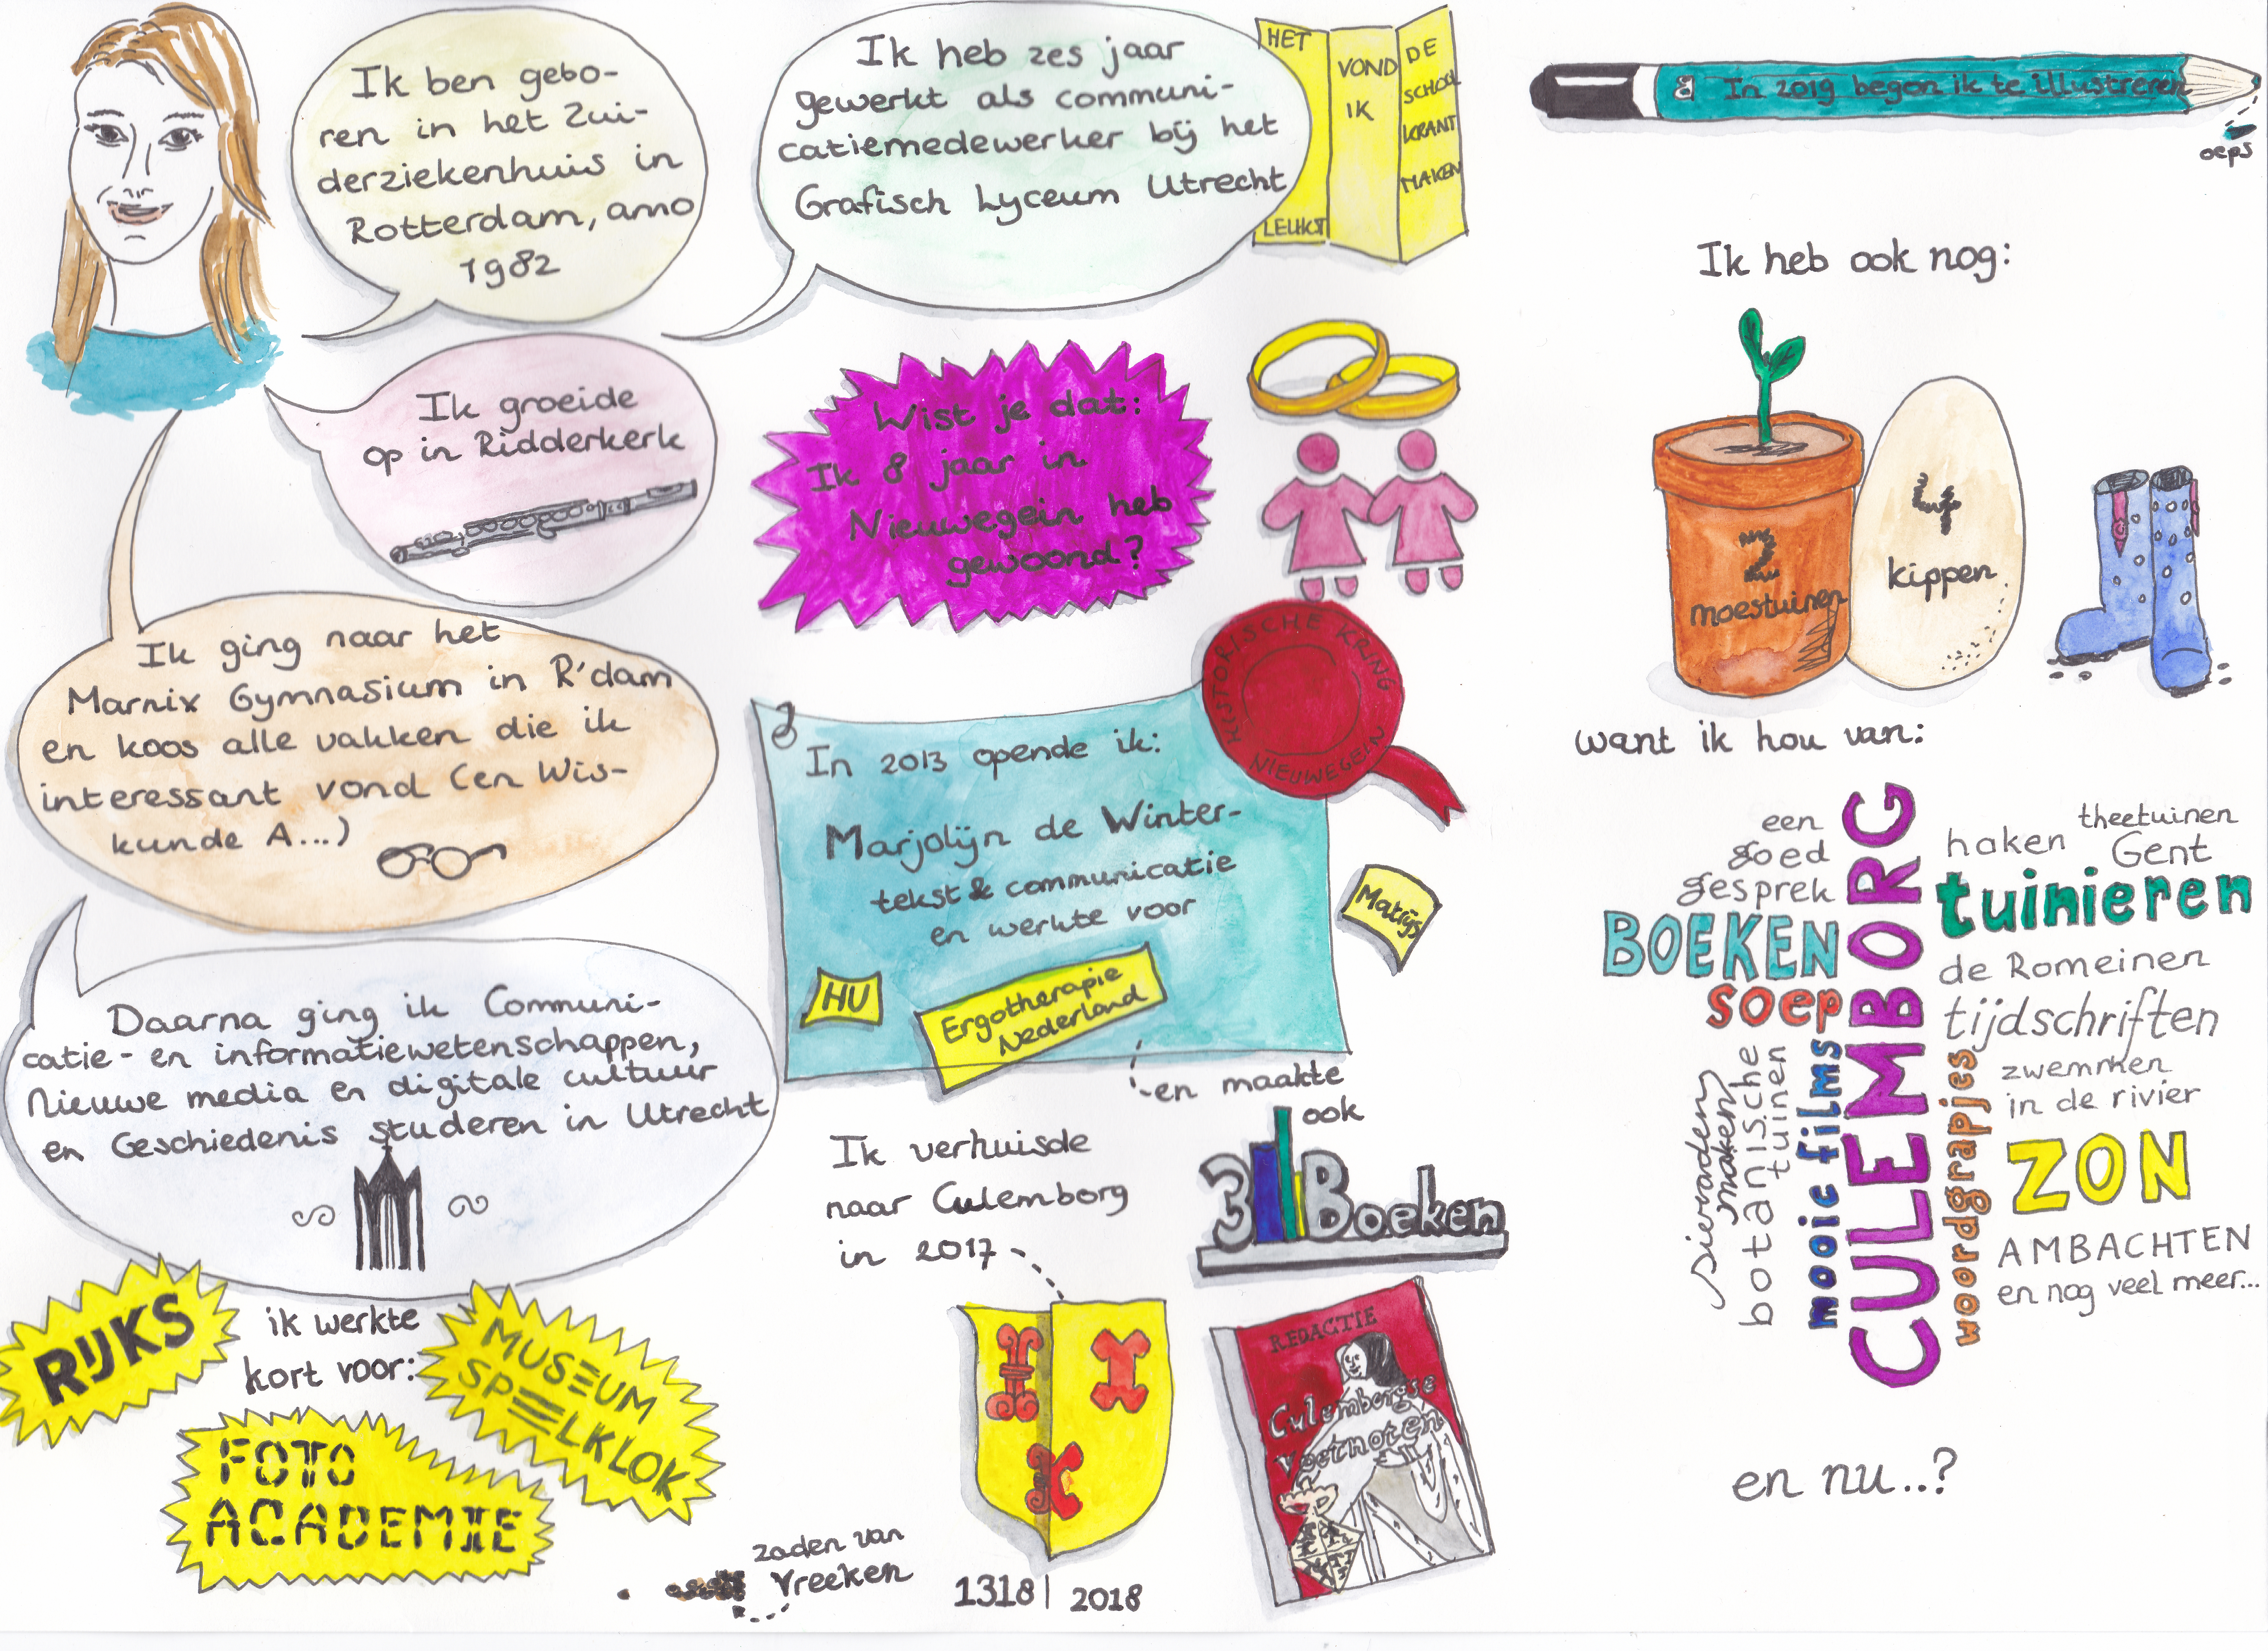 Ik ben gebo-
ren in het Zui-
derziekenhuis in
Rotterdam, anno
1982
Ik groeide
op in Ridderkerk
Ik ging naar het
Marnix Gymnasium in R'dam
en koos alle vakken die ik
interessant vond (en Wis-
kunde A...)
Daarna ging ik Communi-
catie- en informatiewetenschappen,
Nieuwe media en digitale cultuur
en Geschiedenis studeren in Utrecht
ik werkte
kort voor:
RIJKS
MUSEUM
SPEELKLOK
FOTO
ACADEMIE
Ik heb zes jaar
gewerkt als communi-
catiemedewerker bij het
Grafisch Lyceum Utrecht
HET
LEUKST
VOND
IK
DE
SCHOOL
KRANT
MAKEN
Wist je dat:
Ik 8 jaar in
Nieuwegein heb
gewoond?
HISTORISCHE KRING
NIEUWEGEIN
In 2013 opende ik:
Marjolijn de Winter-
tekst & communicatie
en werkte voor
HU
Ergotherapie
Nederland
Matrijs
en maakte
ook
3 Boeken
Ik verhuisde
naar Culemborg
in 2017
1318 | 2018
zaden van
Vreeken
REDACTIE
Culemborgse
Voetnoten
In 2019 begon ik te illustreren
oeps
Ik heb ook nog:
2
moestuinen
4
kippen
want ik hou van:
een
goed
gesprek
BOEKEN
soep
sieraden
maken
botanische
tuinen
mooie films
CULEMBORG
woordgrapjes
haken
theetuinen
Gent
tuinieren
de Romeinen
tijdschriften
zwemmen
in de rivier
ZON
AMBACHTEN
en nog veel meer...
en nu..?